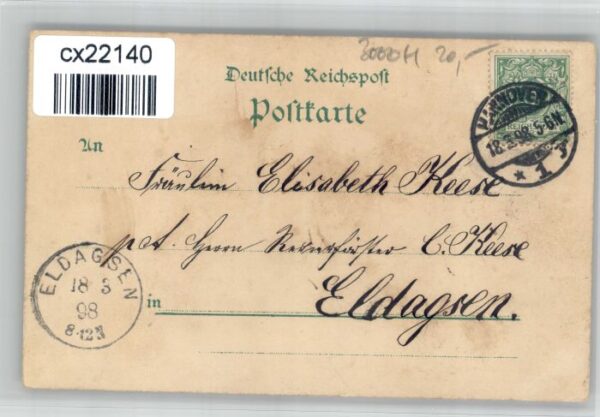 cx22140
30000H 20,-
Deutsche Reichspost
Postkarte
HANNOVER
18.3.98.5-6N.
* 1 J
An
Fräulein Elisabeth Keese
p. A. Herrn Revierförster C. Keese
ELDAGSEN
18 3
98
8-12N
in Eldagsen.